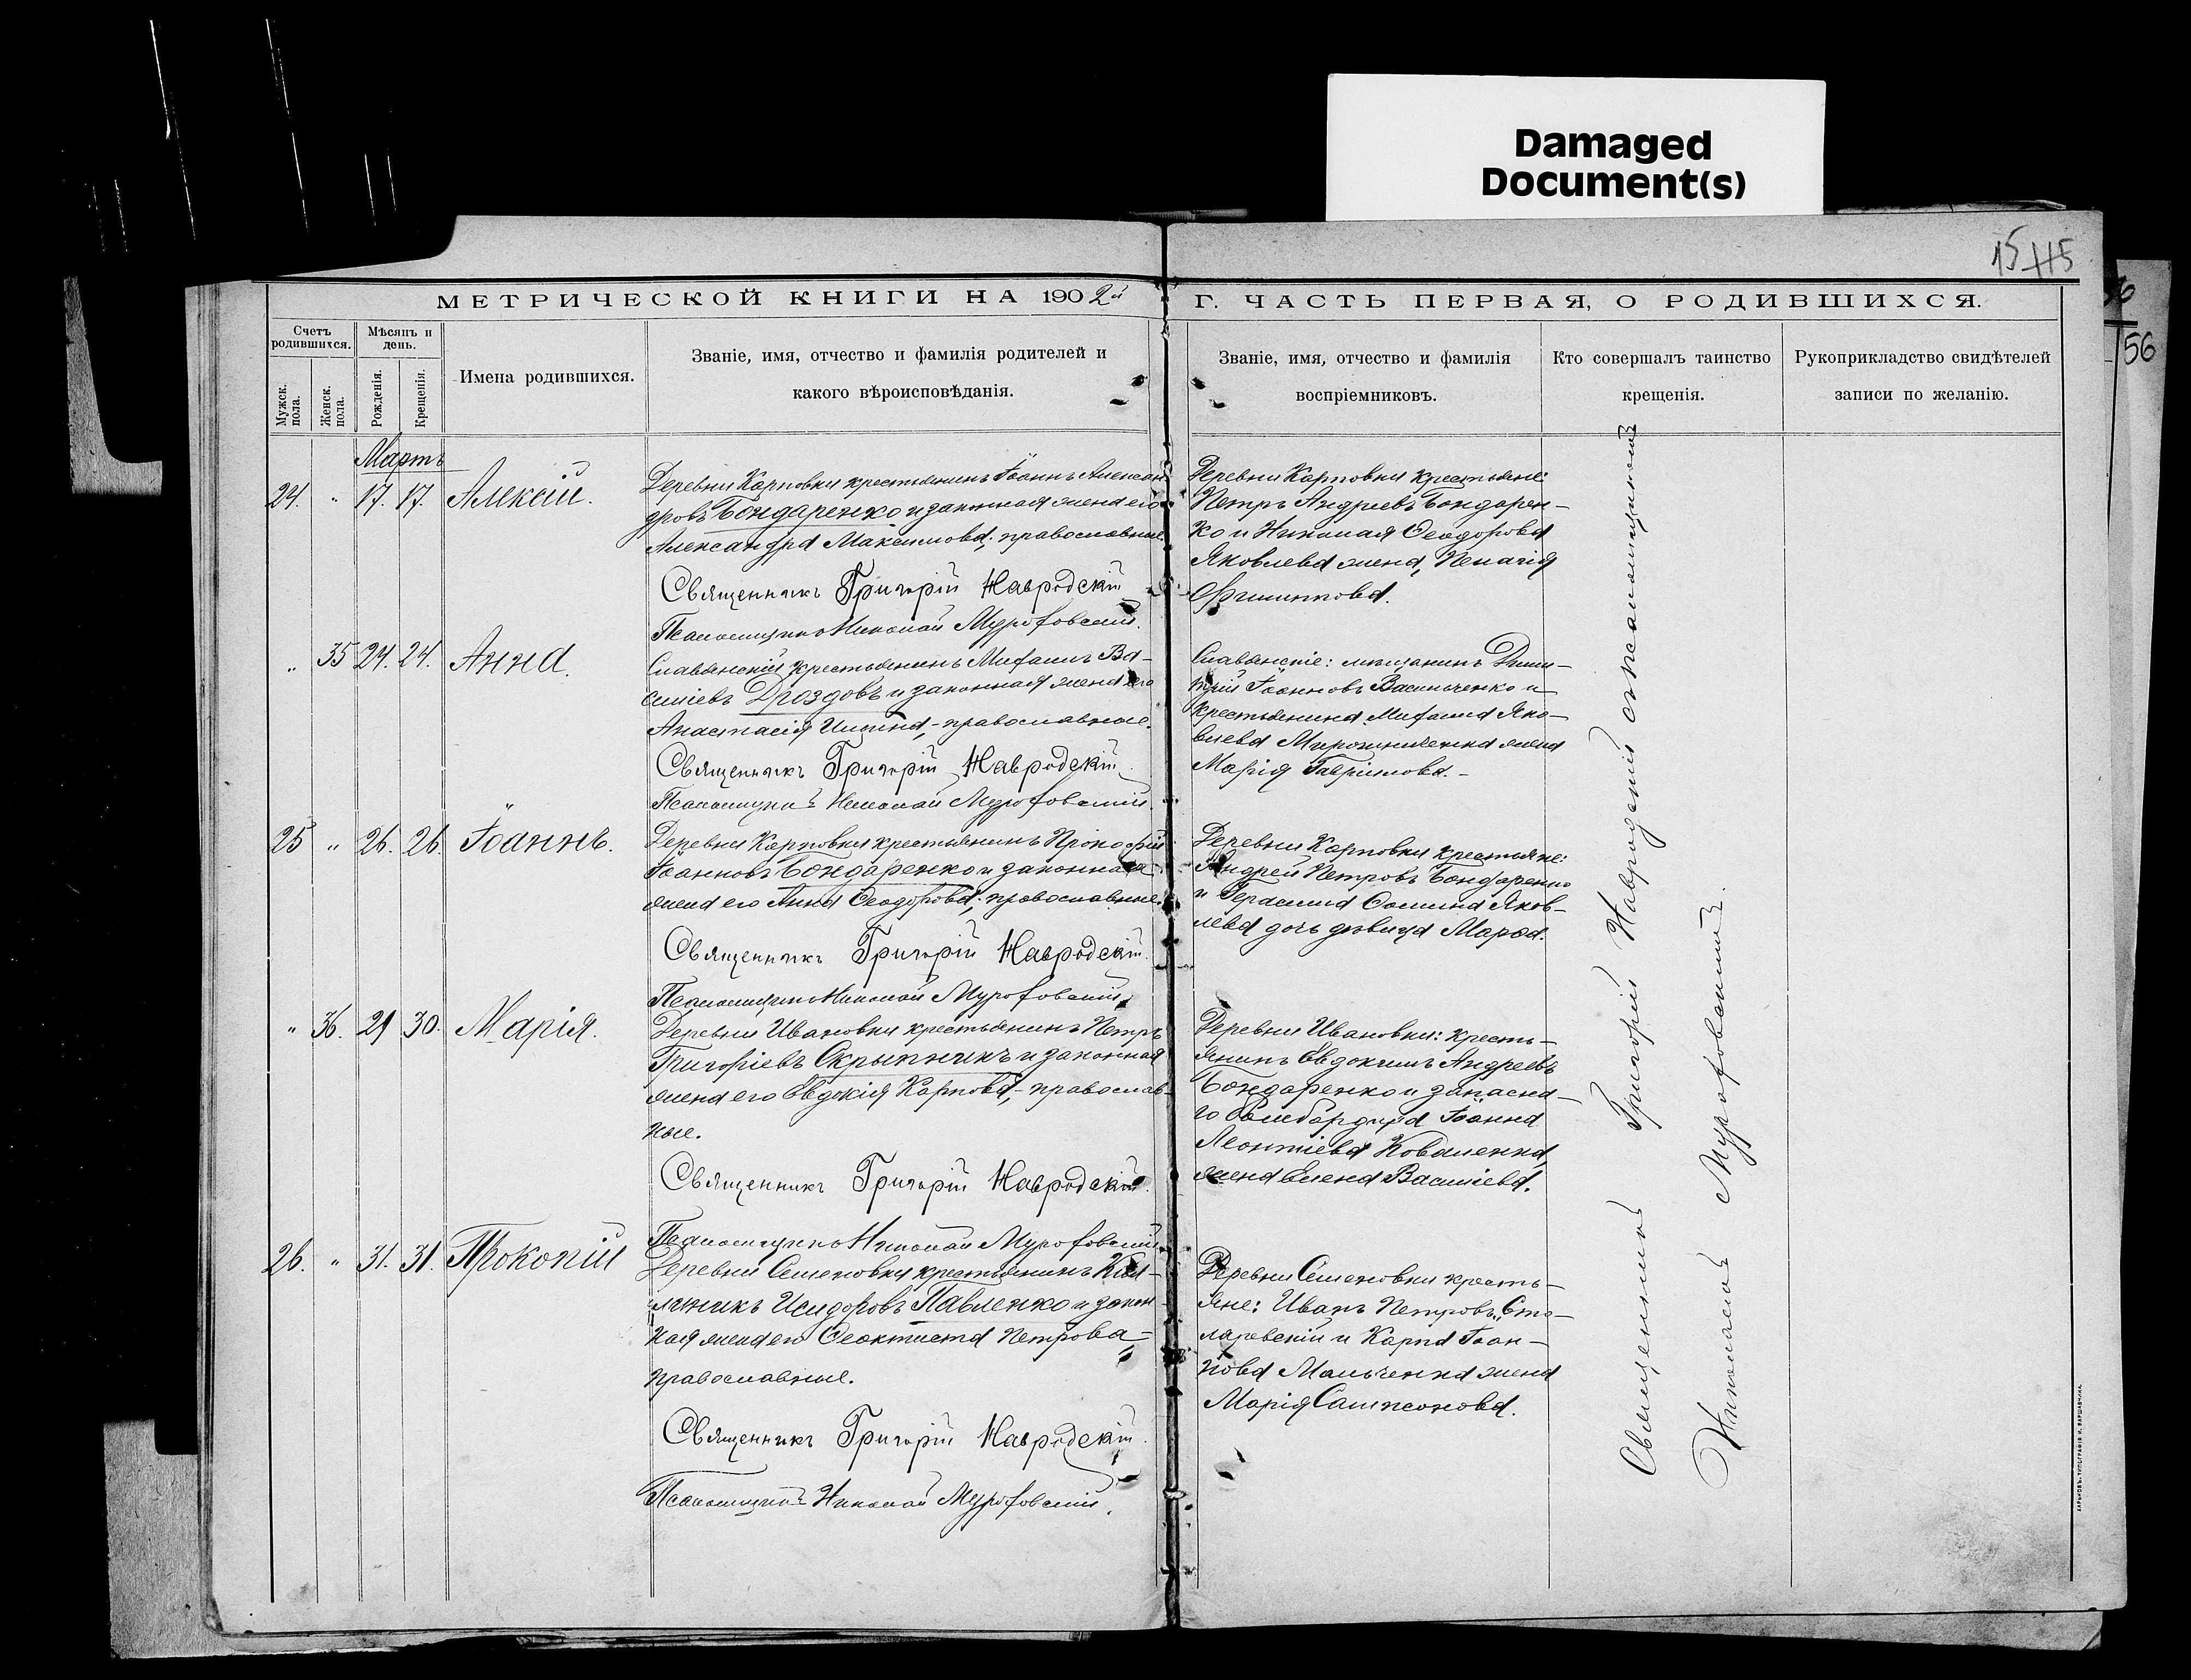 Damaged
Document(s)
15 115
56
МЕТРИЧЕСКОЙ КНИГИ НА 1902й Г. ЧАСТЬ ПЕРВАЯ, О РОДИВШИХСЯ.
Счетъ родившихся.
Мужск. пола.
Женск. пола.
Мѣсяцъ и день.
Рожденія.
Крещенія.
Имена родившихся.
Званіе, имя, отчество и фамилія родителей и
какого вѣроисповѣданія.
Званіе, имя, отчество и фамилія
воспріемниковъ.
Кто совершалъ таинство
крещенія.
Рукоприкладство свидѣтелей
записи по желанію.
Мартъ
24. " 17. 17. Алексій.
Деревни Карповки крестьянинъ Іоаннъ Алексан-
дровъ Бондаренко и законная жена его
Александра Максимова; православные.
Священникъ Григорій Навродскій
Псаломщикъ Николай Мурофовскій.
Деревни Карповки крестьяне:
Петръ Андреевъ Бондарен-
ко и Николая Ѳеодорова
Яковлева жена, Пелагія
Филиппова.
" 35 24. 24. Анна.
Славянскій крестьянинъ Михаилъ Ва-
силіевъ Дроздовъ и законная жена его
Анастасія Ильина, - православные.
Священникъ Григорій Навродскій
Псаломщикъ Николай Мурофовскій.
Славянскіе: мѣщанинъ Дими-
трій Іоанновъ Васильченко и
крестьянина Михаила Яко-
влева Мирошниченка жена
Марія Гавріилова. -
25 " 26. 26. Іоаннъ.
Деревни Карповки крестьянинъ Прокофій
Іоанновъ Бондаренко и законная
жена его Анна Ѳеодорова; православные.
Священникъ Григорій Навродскій.
Псаломщикъ Николай Мурофовскій.
Деревни Карповки крестьяне:
Андрей Петровъ Бондаренко
и Герасима Ѳомина Яков-
лева дочь дѣвица Марѳа.
" 36. 29 30. Марія.
Деревни Ивановки крестьянинъ Петръ
Григоріевъ Скрыпникъ и законная
жена его Евдокія Карпова, - православ-
ные.
Священникъ Григорій Навродскій.
Псаломщикъ Николай Мурофовскій.
Деревни Ивановки: кресть-
янинъ Евдокимъ Андреевъ
Бондаренко и запасна-
го бомбардира Іоанна
Леонтіева Коваленка,
жена Елена Василіева.
26. " 31. 31. Прокопій
Деревни Семеновки крестьянинъ Кал-
линикъ Исидоровъ Павленко и закон-
ная жена его Ѳеоктиста Петрова -
православные.
Священникъ Григорій Навродскій.
Псаломщикъ Николай Мурофовскій.
Деревни Семеновки кресть-
яне: Иванъ Петровъ Сто-
ляревскій и Карпа Іоан-
нова Мальченка жена
Марія Сампсонова.
Священникъ Григорій Навродскій съ псаломщикомъ
Николаемъ Мурофовскимъ.
ХАРЬКОВЪ. ТИПОГРАФІЯ И. ВАРШАВЧИКА.